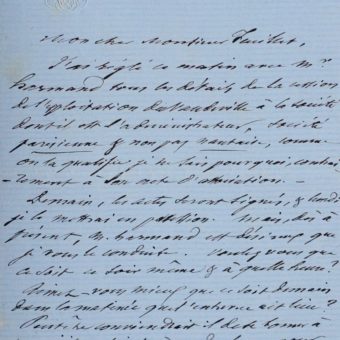 Mon cher Monsieur Feuillet,
J'ai réglé ce matin avec Mr
hormand tous les détails de la cession
de l'exploitation du Vaudeville à la société
dont il est l'administrateur, société
parisienne & non pas nantaise, comme
on la qualifie je ne sais pourquoi, contrai-
-rement à son acte d'association. -
Demain, les actes seront signés, & lundi
je le mettrai en possession. Mais, dès à
présent, M. hormand est désireux que
je vous le conduise. Voulez-vous que
ce soit ce soir même & à quelle heure?
Aimez-vous mieux que ce soit demain
dans la matinée que l'entrevue ait lieu?
Peut-être conviendrait-il de le